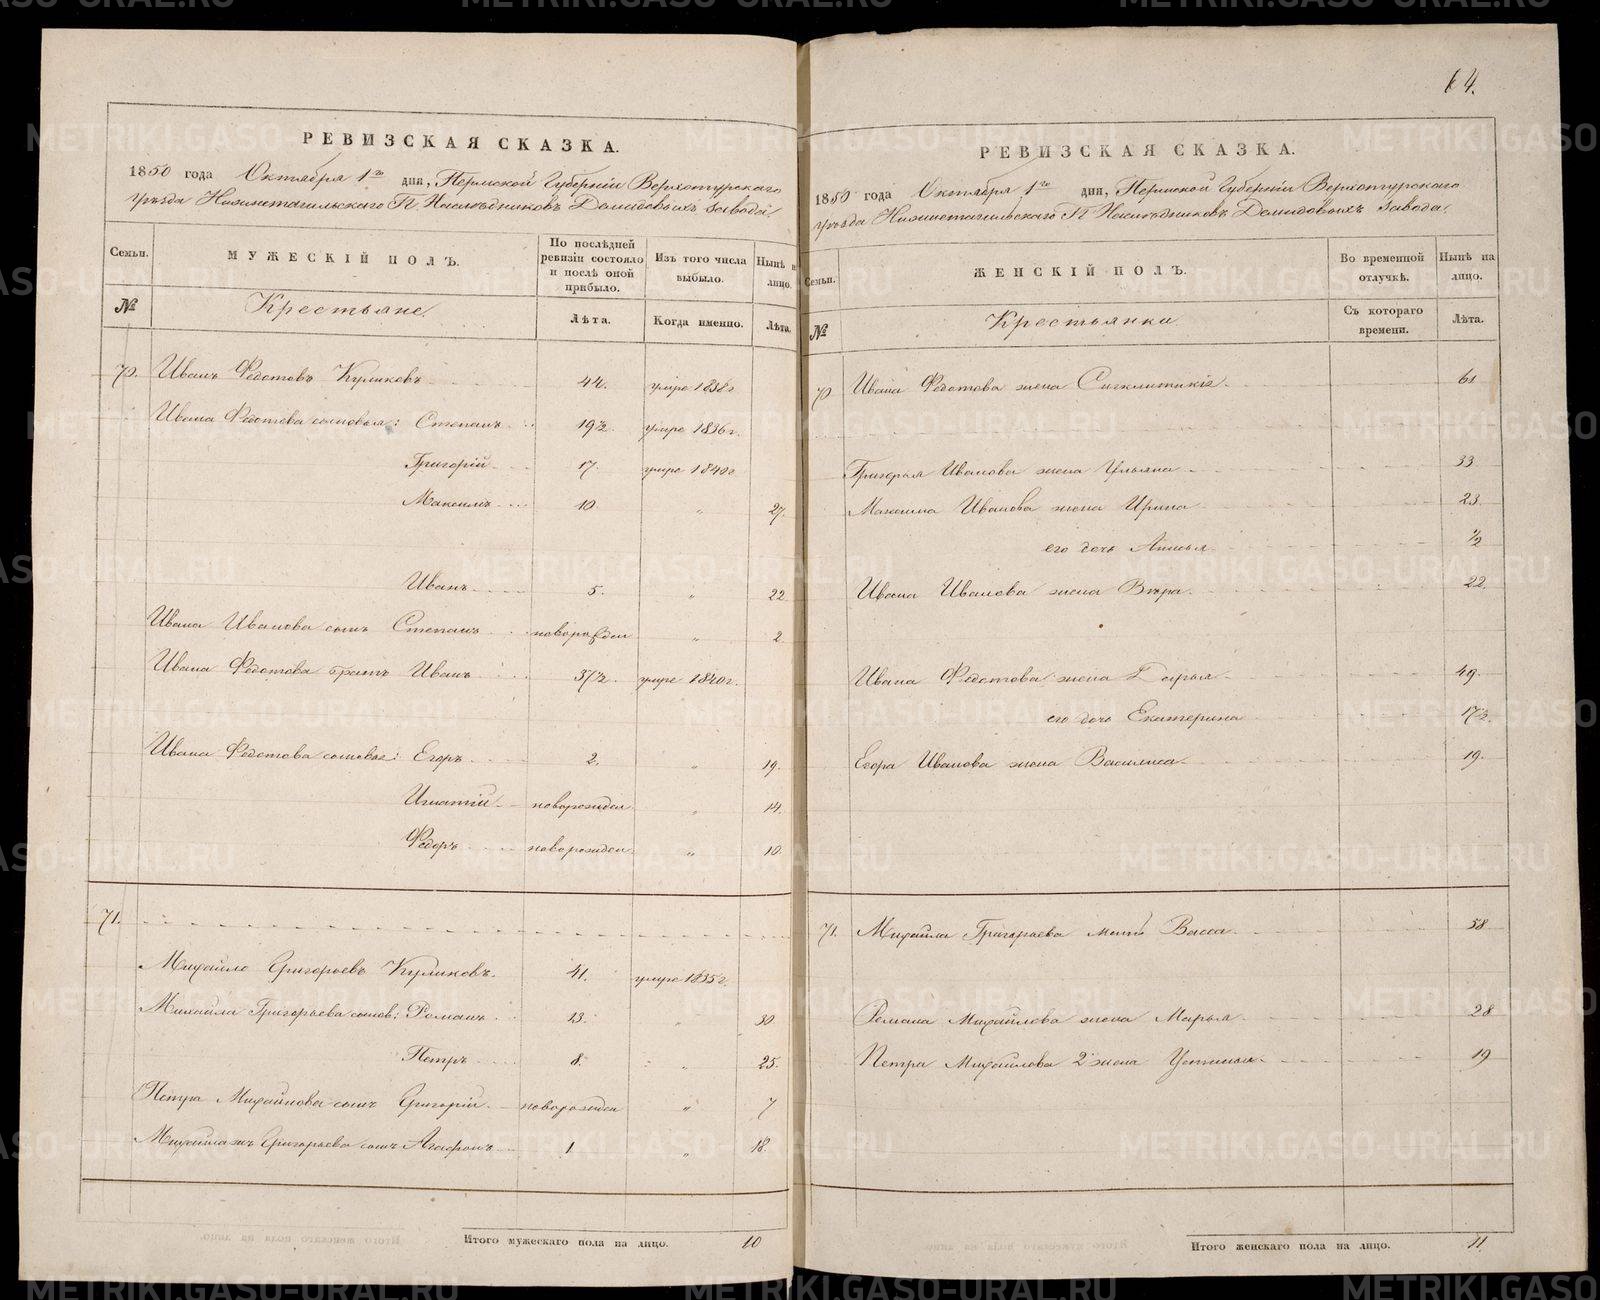 64.
РЕВИЗСКАЯ СКАЗКА.
1850 года Октября 1го дня, Пермской Губерніи Верхотурскаго
уѣзда Нижнетагильскаго Г.г. Наслѣдниковъ Демидовыхъ завода
Семьи. МУЖЕСКІЙ ПОЛЪ. По послѣдней ревизіи состояло и послѣ оной прибыло. Изъ того числа выбыло. Нынѣ на лицо.
№ Крестьяне. Лѣта. Когда именно. Лѣта.
70. Иванъ Федотовъ Куликовъ 44. умре 1838г
Ивана Федотова сыновья: Степанъ 19½ умре 1836г.
Григорій 17. умре 1840г
Максимъ 10 " 27.
Иванъ 5. " 22
Ивана Иванова сынъ Степанъ новорожден " 2.
Ивана Федотова братъ Иванъ 37½. умре 1840г.
Ивана Федотова сыновья: Егоръ 2. " 19.
Игнатій новорожден " 14.
Федоръ новорожден " 10.
71.
Михайло Григорьевъ Куликовъ. 41. умре 1835г.
Михайла Григорьева сынов: Романъ 13. " 30.
Петръ 8. " 25.
Петра Михайлова сынъ Григорій новорожден " 7
Михайла жъ Григорьева сынъ Агафонъ 1 " 18.
Итого мужескаго пола на лицо. 10
РЕВИЗСКАЯ СКАЗКА.
1850 года Октября 1го дня, Пермской Губерніи Верхотурскаго
уѣзда Нижнетагильскаго Г.г. Наслѣдниковъ Демидовыхъ завода.
Семьи. ЖЕНСКІЙ ПОЛЪ. Во временной отлучкѣ. Нынѣ на лицо.
№ Крестьянки Съ котораго времени. Лѣта.
70 Ивана Федотова жена Сигклитикія 61
Григорья Иванова жена Ульяна 33
Максима Иванова жена Ирина 23
его дочь Анисья ½
Ивана Иванова жена Вѣра. 22.
Ивана Федотова жена Дарья 49.
его дочь Екатерина 17½.
Егора Иванова жена Василиса 19.
71. Михайла Григорьева мать Васса 58
Романа Михайлова жена Марья 28
Петра Михайлова 2 жена Устинья 19
Итого женскаго пола на лицо. 11
METRIKI.GASO-URAL.RU